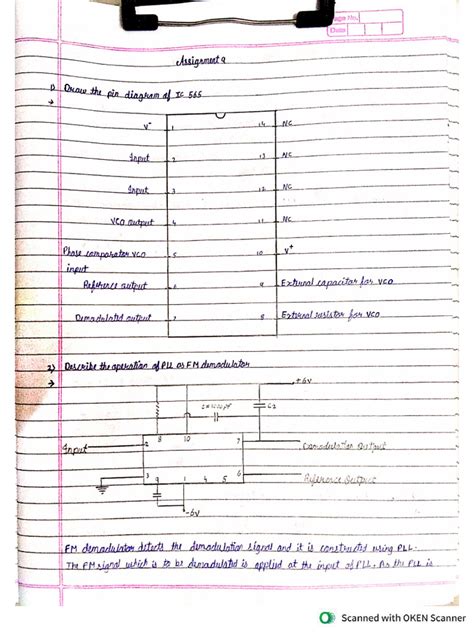 Page No.
Date
Assignment 9
1) Draw the pin diagram of IC 565
→
V⁻ 1 14 NC
Input 2 13 NC
Input 3 12 NC
VCO output 4 11 NC
Phase comparator VCO input 5 10 V⁺
Reference output 6 9 External capacitor for VCO
Demodulated output 7 8 External resistor for VCO
2) Describe the operation of PLL as FM demodulator
→
+6V
C2
8 10 7
Input 2
Output
3 9 1 4 5 6 Reference Output
-6V
FM demodulator detects the demodulation signal and it is constructed using PLL.
The FM signal which is to be demodulated is applied at the input of PLL. As the PLL is
Scanned with OKEN Scanner